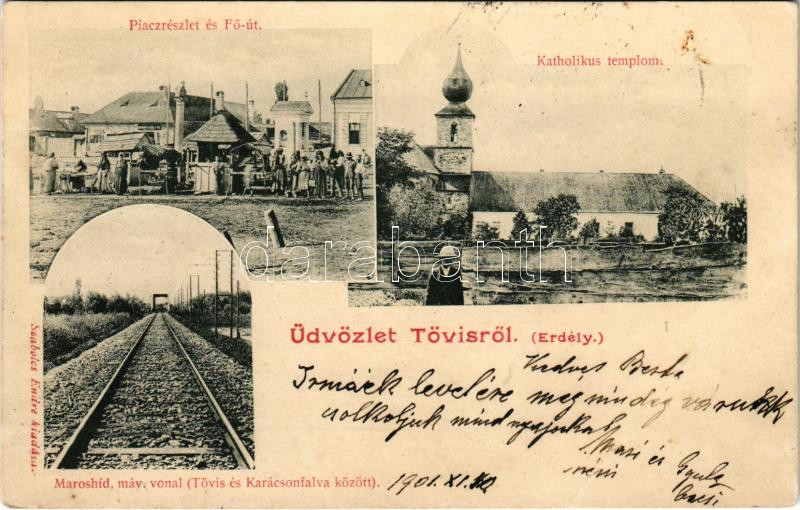 Piaczrészlet és Fő-út.
Katholikus templom.
darabanth
Üdvözlet Tövisről. (Erdély.)
Kedves Berta
Irmáék levelére még mindég várunk
csolkoljuk mindnyájokat
és Gyula
1901. XI.
Maroshíd, máv. vonal (Tövis és Karácsonfalva között).
Szabolcs Endre kiadása.